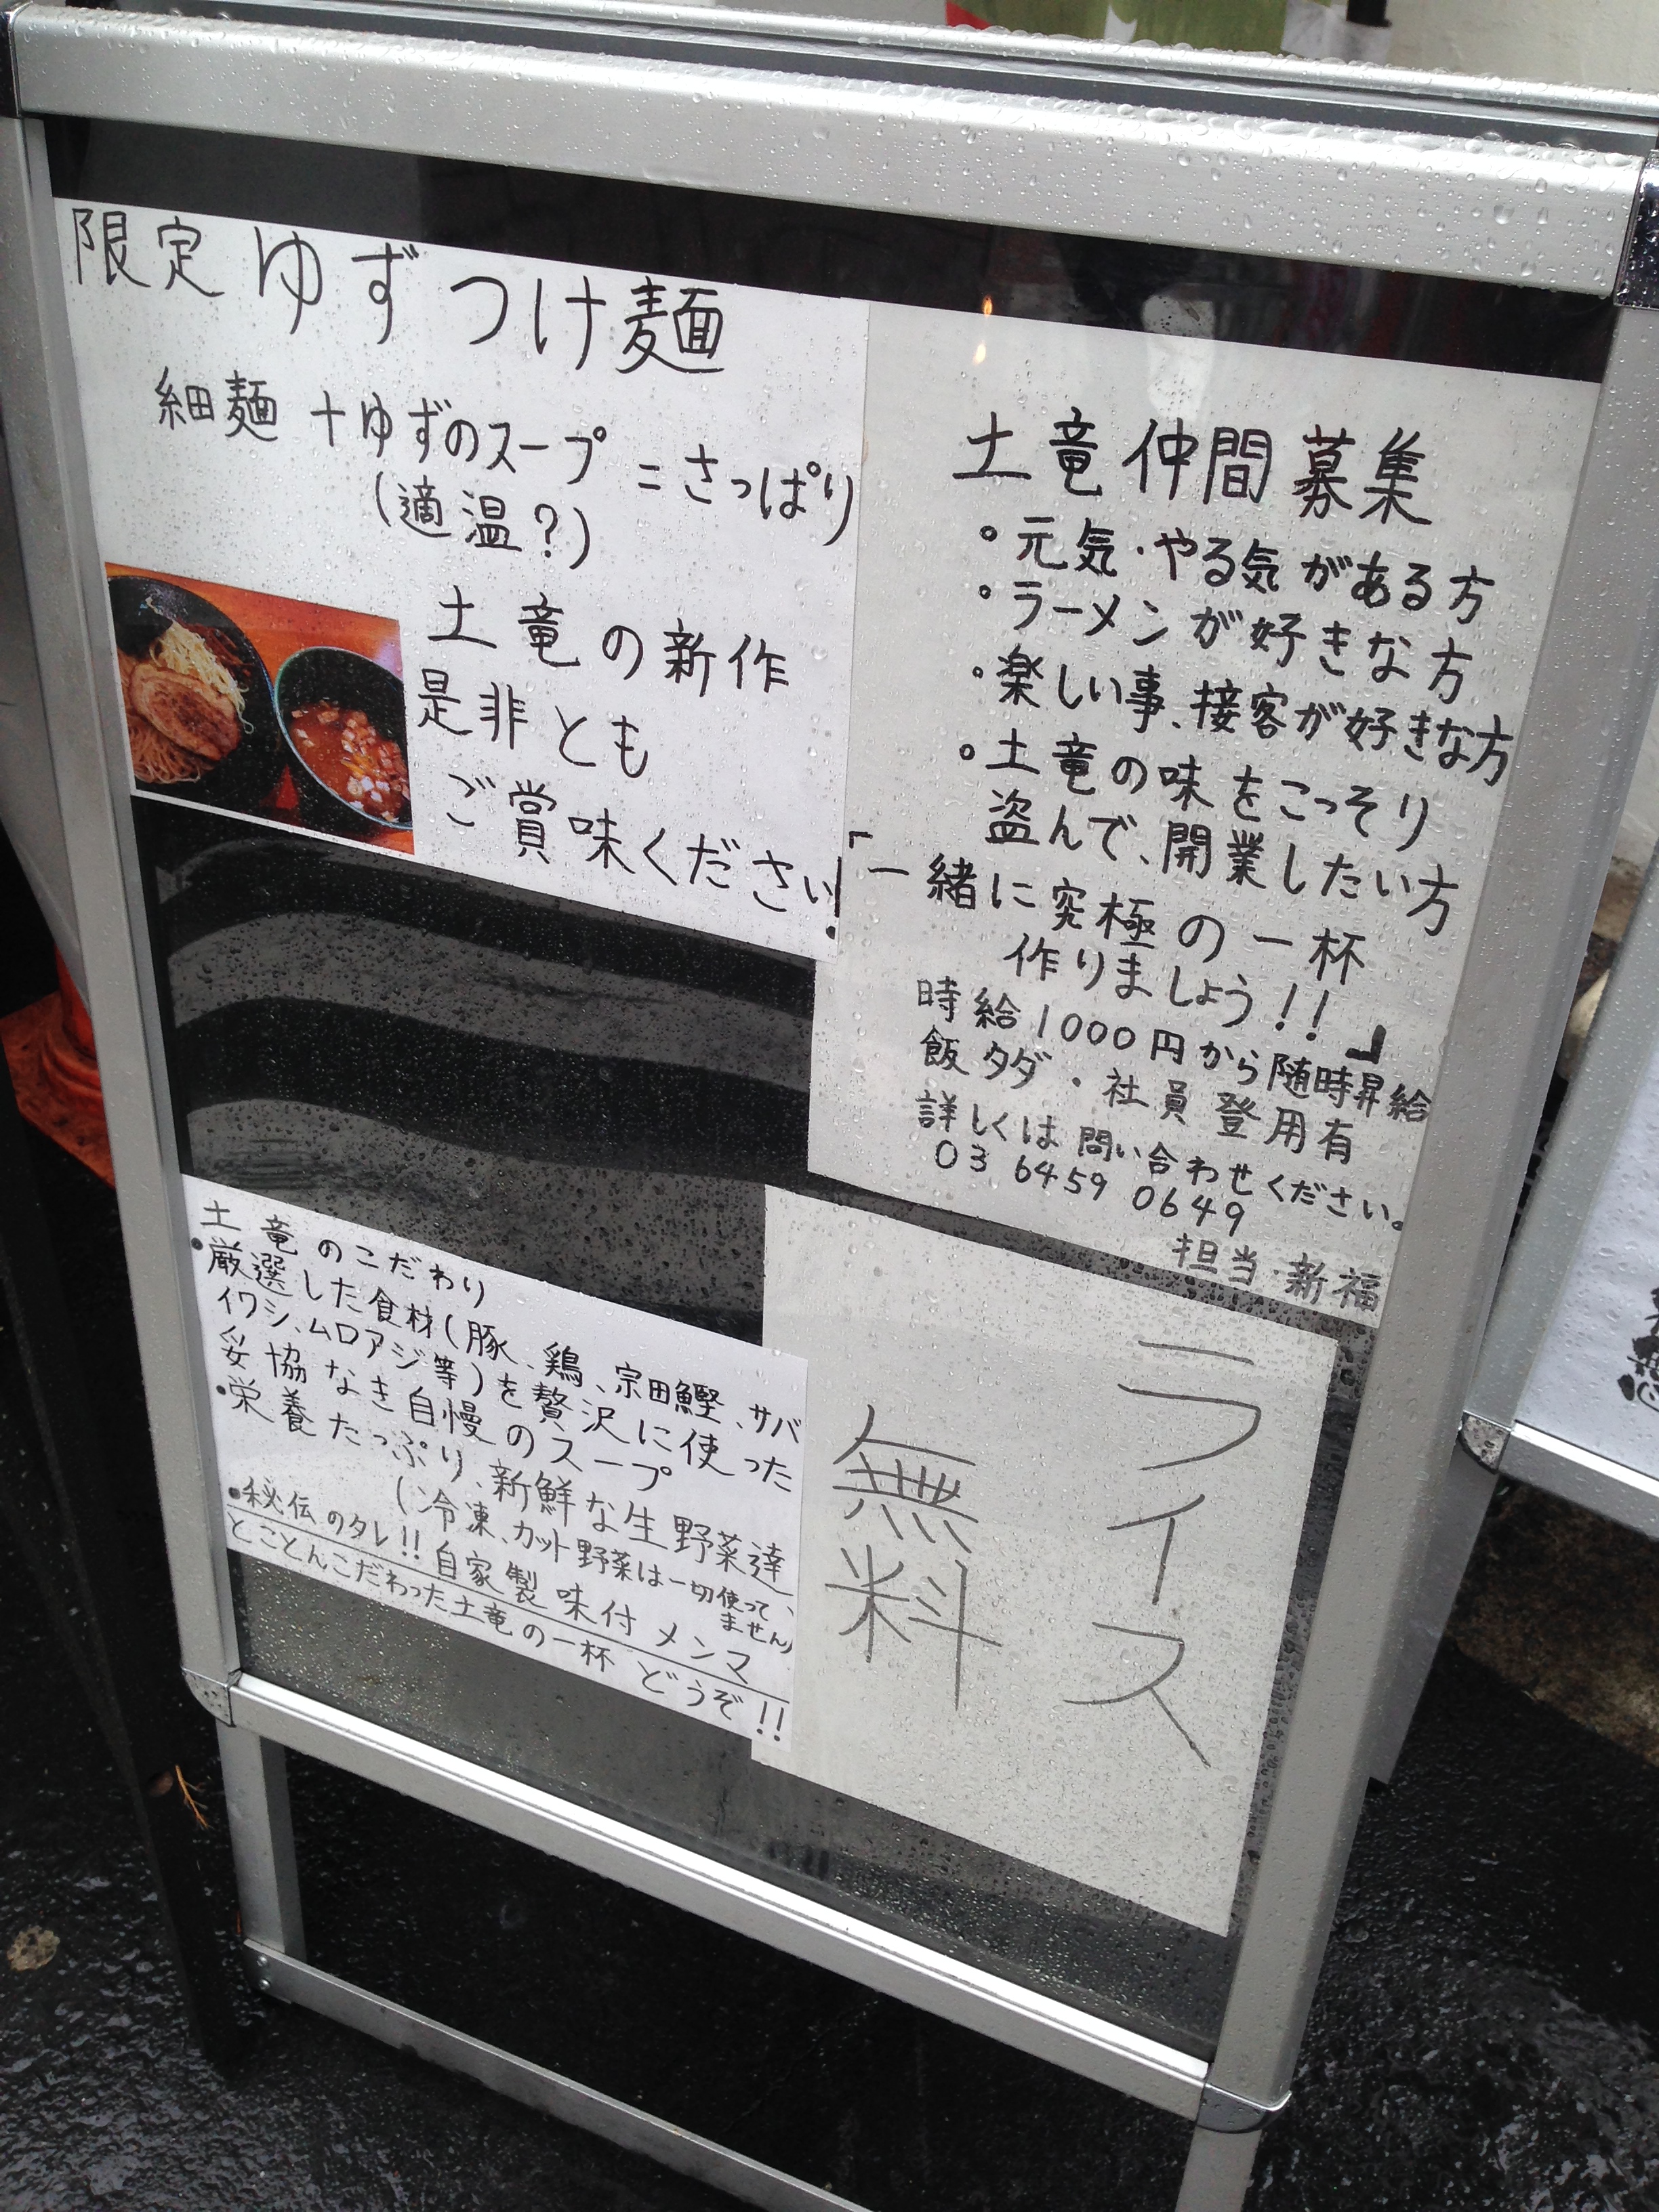 限定ゆずつけ麺
細麺+ゆずのスープ=さっぱり
(適温?)
土竜の新作
是非とも
ご賞味ください!
土竜仲間募集
。元気・やる気がある方
・ラーメンが好きな方
・楽しい事、接客が好きな方
。土竜の味をこっそり
盗んで、開業したい方
「一緒に究極の一杯
作りましょう!!」
時給1000円から随時昇給
飯タダ・社員登用有
詳しくは問い合わせください。
03 6459 0649
担当 新福
土竜のこだわり
•厳選した食材(豚、鶏、宗田鰹、サバ
イワシ、ムロアジ等)を贅沢に使った
妥協なき自慢のスープ
•栄養たっぷり、新鮮な生野菜達
(冷凍、カット野菜は一切使って、
ません)
•秘伝のタレ!!自家製味付メンマ
とことんこだわった土竜の一杯どうぞ!!
ライス
無料